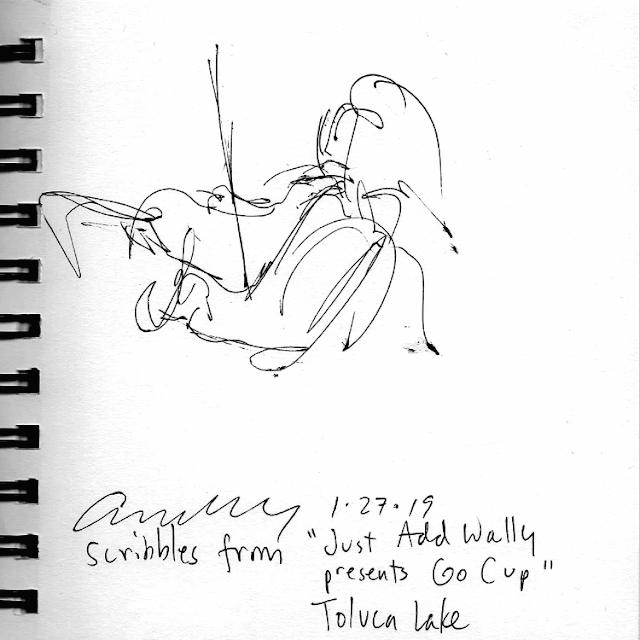 1.27.19
scribbles from "Just Add Wally
presents Go Cup"
Toluca Lake